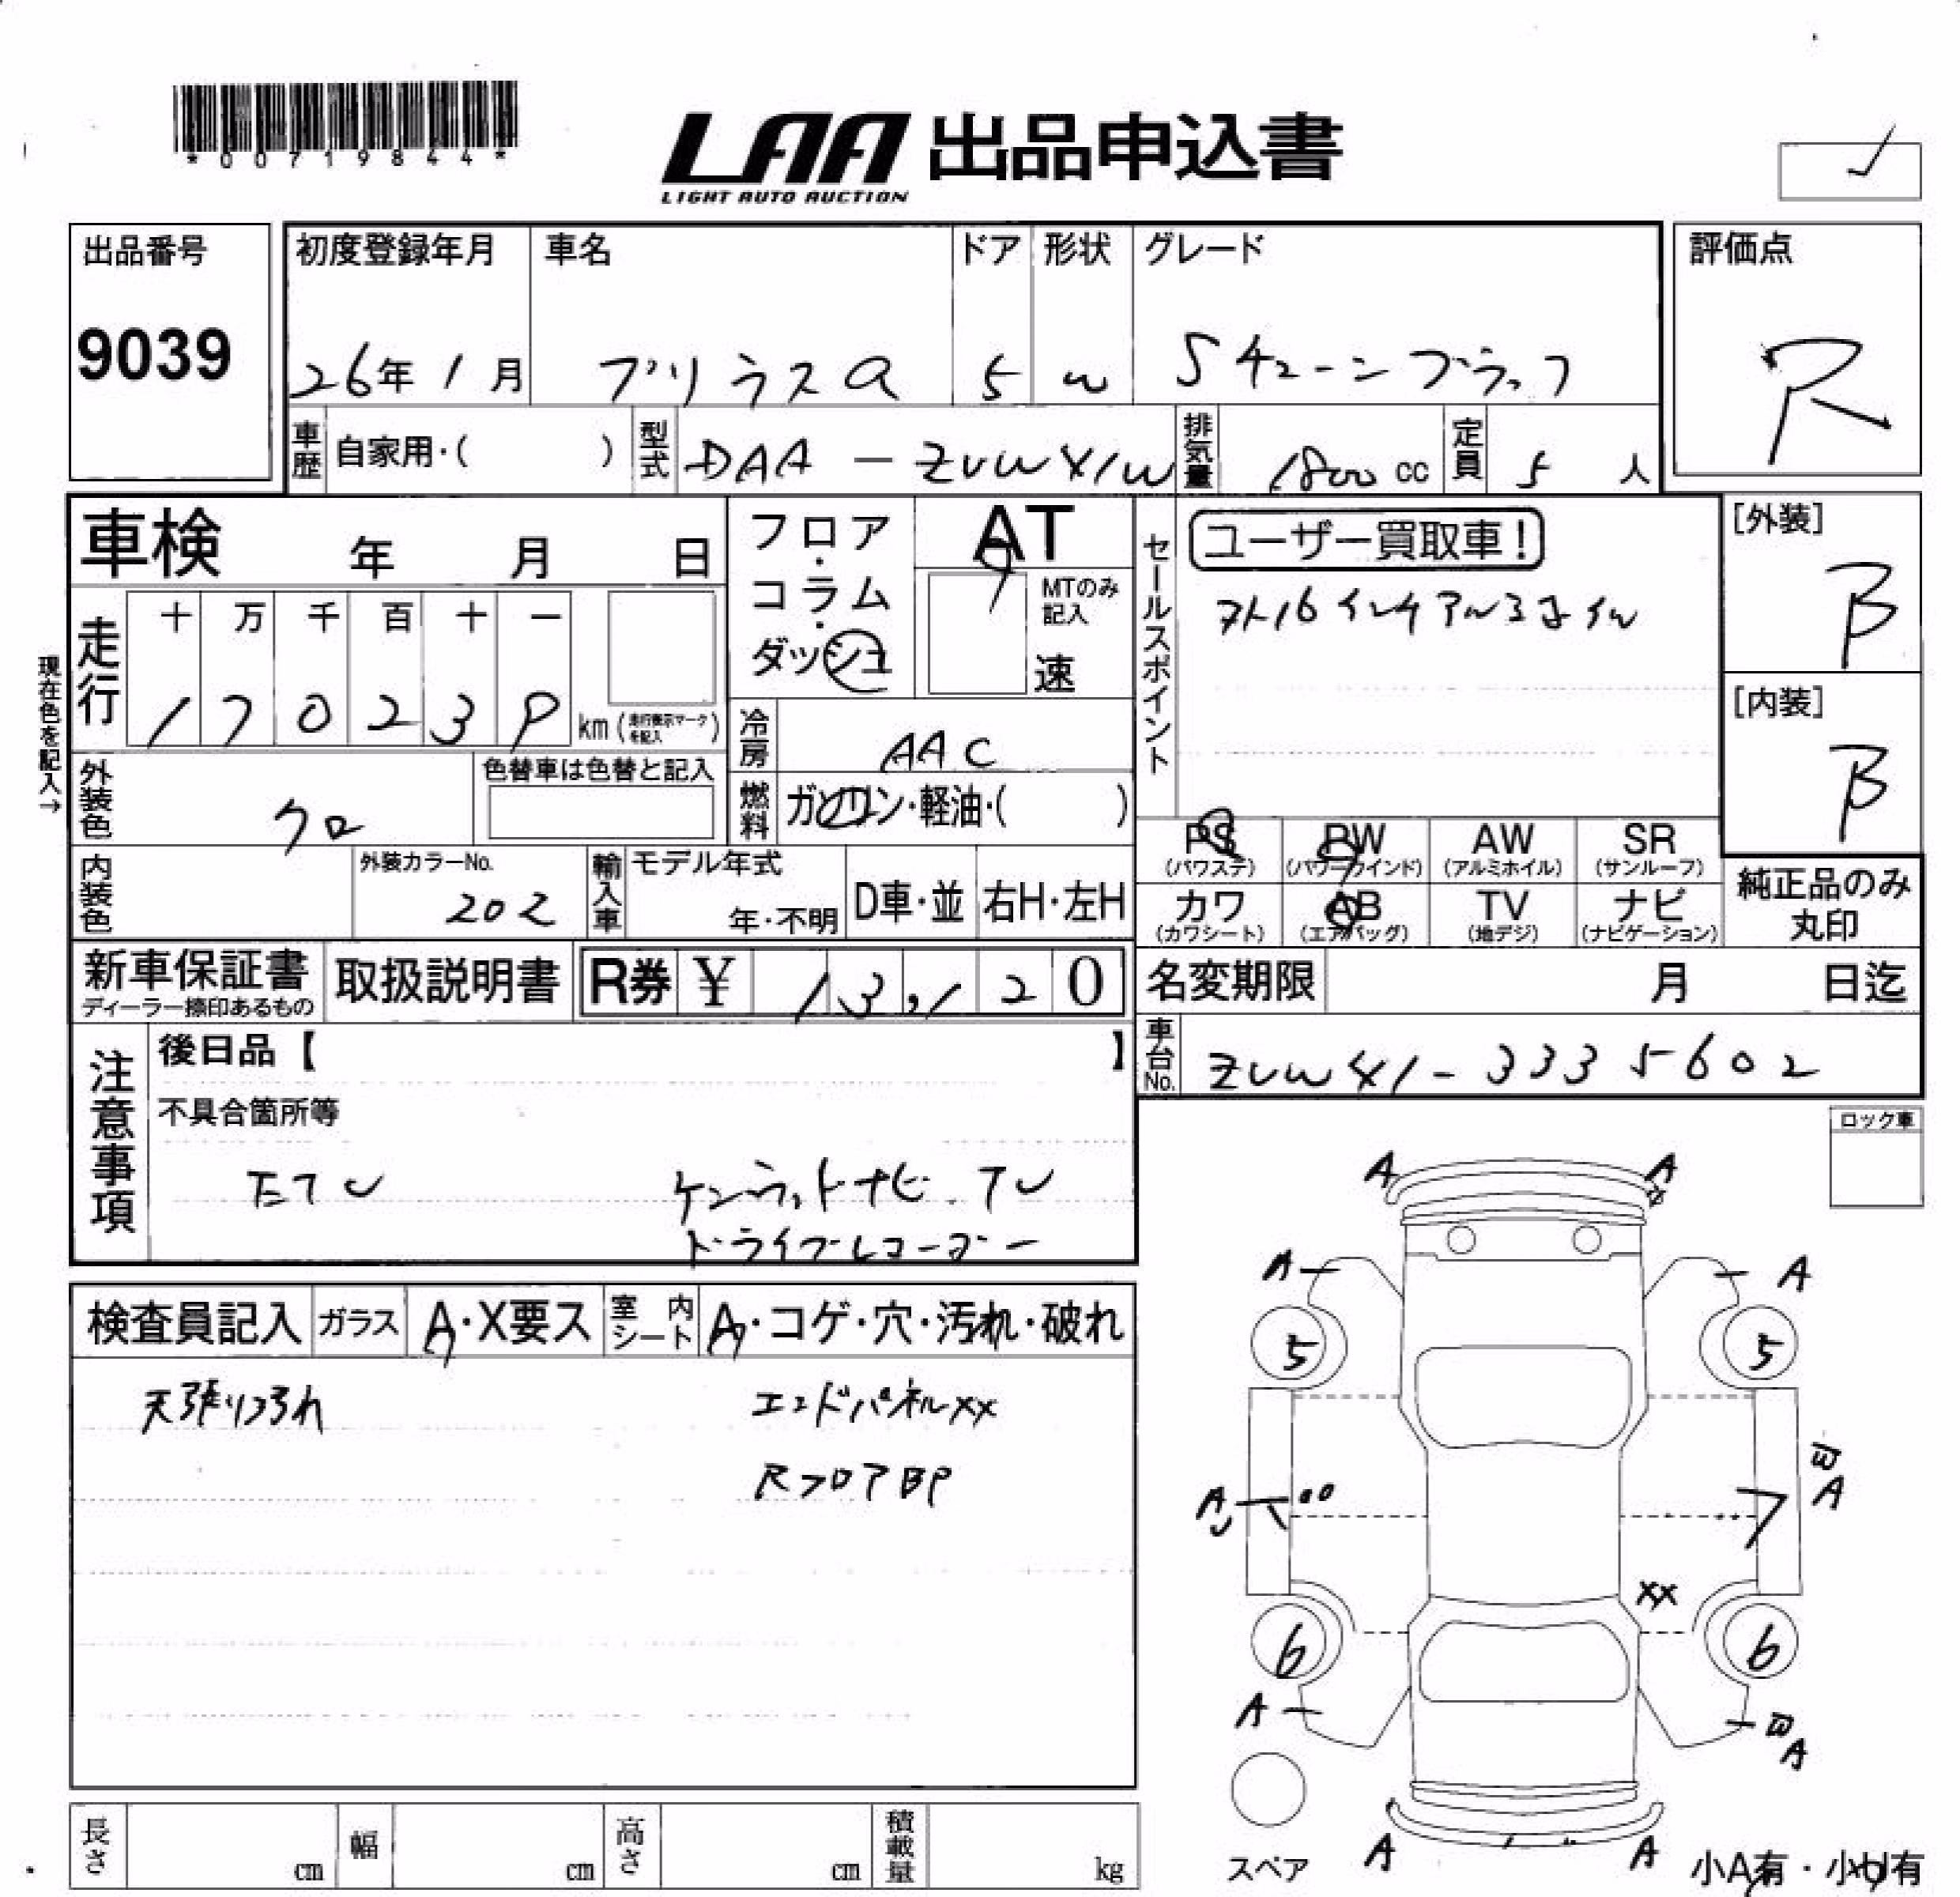 *00719844*
LAA 出品申込書
LIGHT AUTO AUCTION
出品番号
9039
初度登録年月 車名 ドア 形状 グレード
26年 1月 プリウスα 5 W Sチューンブラック
評価点
R
車歴 自家用・( ) 型式 DAA-ZVW41W 排気量 1800 cc 定員 5 人
車検 年 月 日
フロア・コラム・ダッシュ
AT
MTのみ記入
速
セールスポイント
ユーザー買取車!
スト16インチアルミホイル
[外装]
B
[内装]
B
現在色を記入→
走行 十 万 千 百 十 一
1 7 0 2 3 9 km (走行表示マークを記入)
冷房 AAC
外装色 クロ
色替車は色替と記入
燃料 ガソリン・軽油・( )
内装色
外装カラーNo.
202
輸入車 モデル年式
年・不明 D車・並 右H・左H
PS (パワステ) PW (パワーウインド) AW (アルミホイル) SR (サンルーフ)
カワ (カワシート) AB (エアバッグ) TV (地デジ) ナビ (ナビゲーション)
純正品のみ
丸印
新車保証書 取扱説明書 R券 ¥ 13,120
ディーラー捺印あるもの
名変期限 月 日迄
車台No. ZVW41-3335602
注意事項
後日品【 】
不具合箇所等
ETC ケンウッドナビ.TV
ドライブレコーダー
ロック車
検査員記入 ガラス A・X要ス 室内シート A・コゲ・穴・汚れ・破れ
天張り汚れ エンドパネルXX
RフロアBP
A A
A A
5 5
A A
XX
6 6
A A
A A
スペア
小A有・小U有
長さ cm 幅 cm 高さ cm 積載量 kg